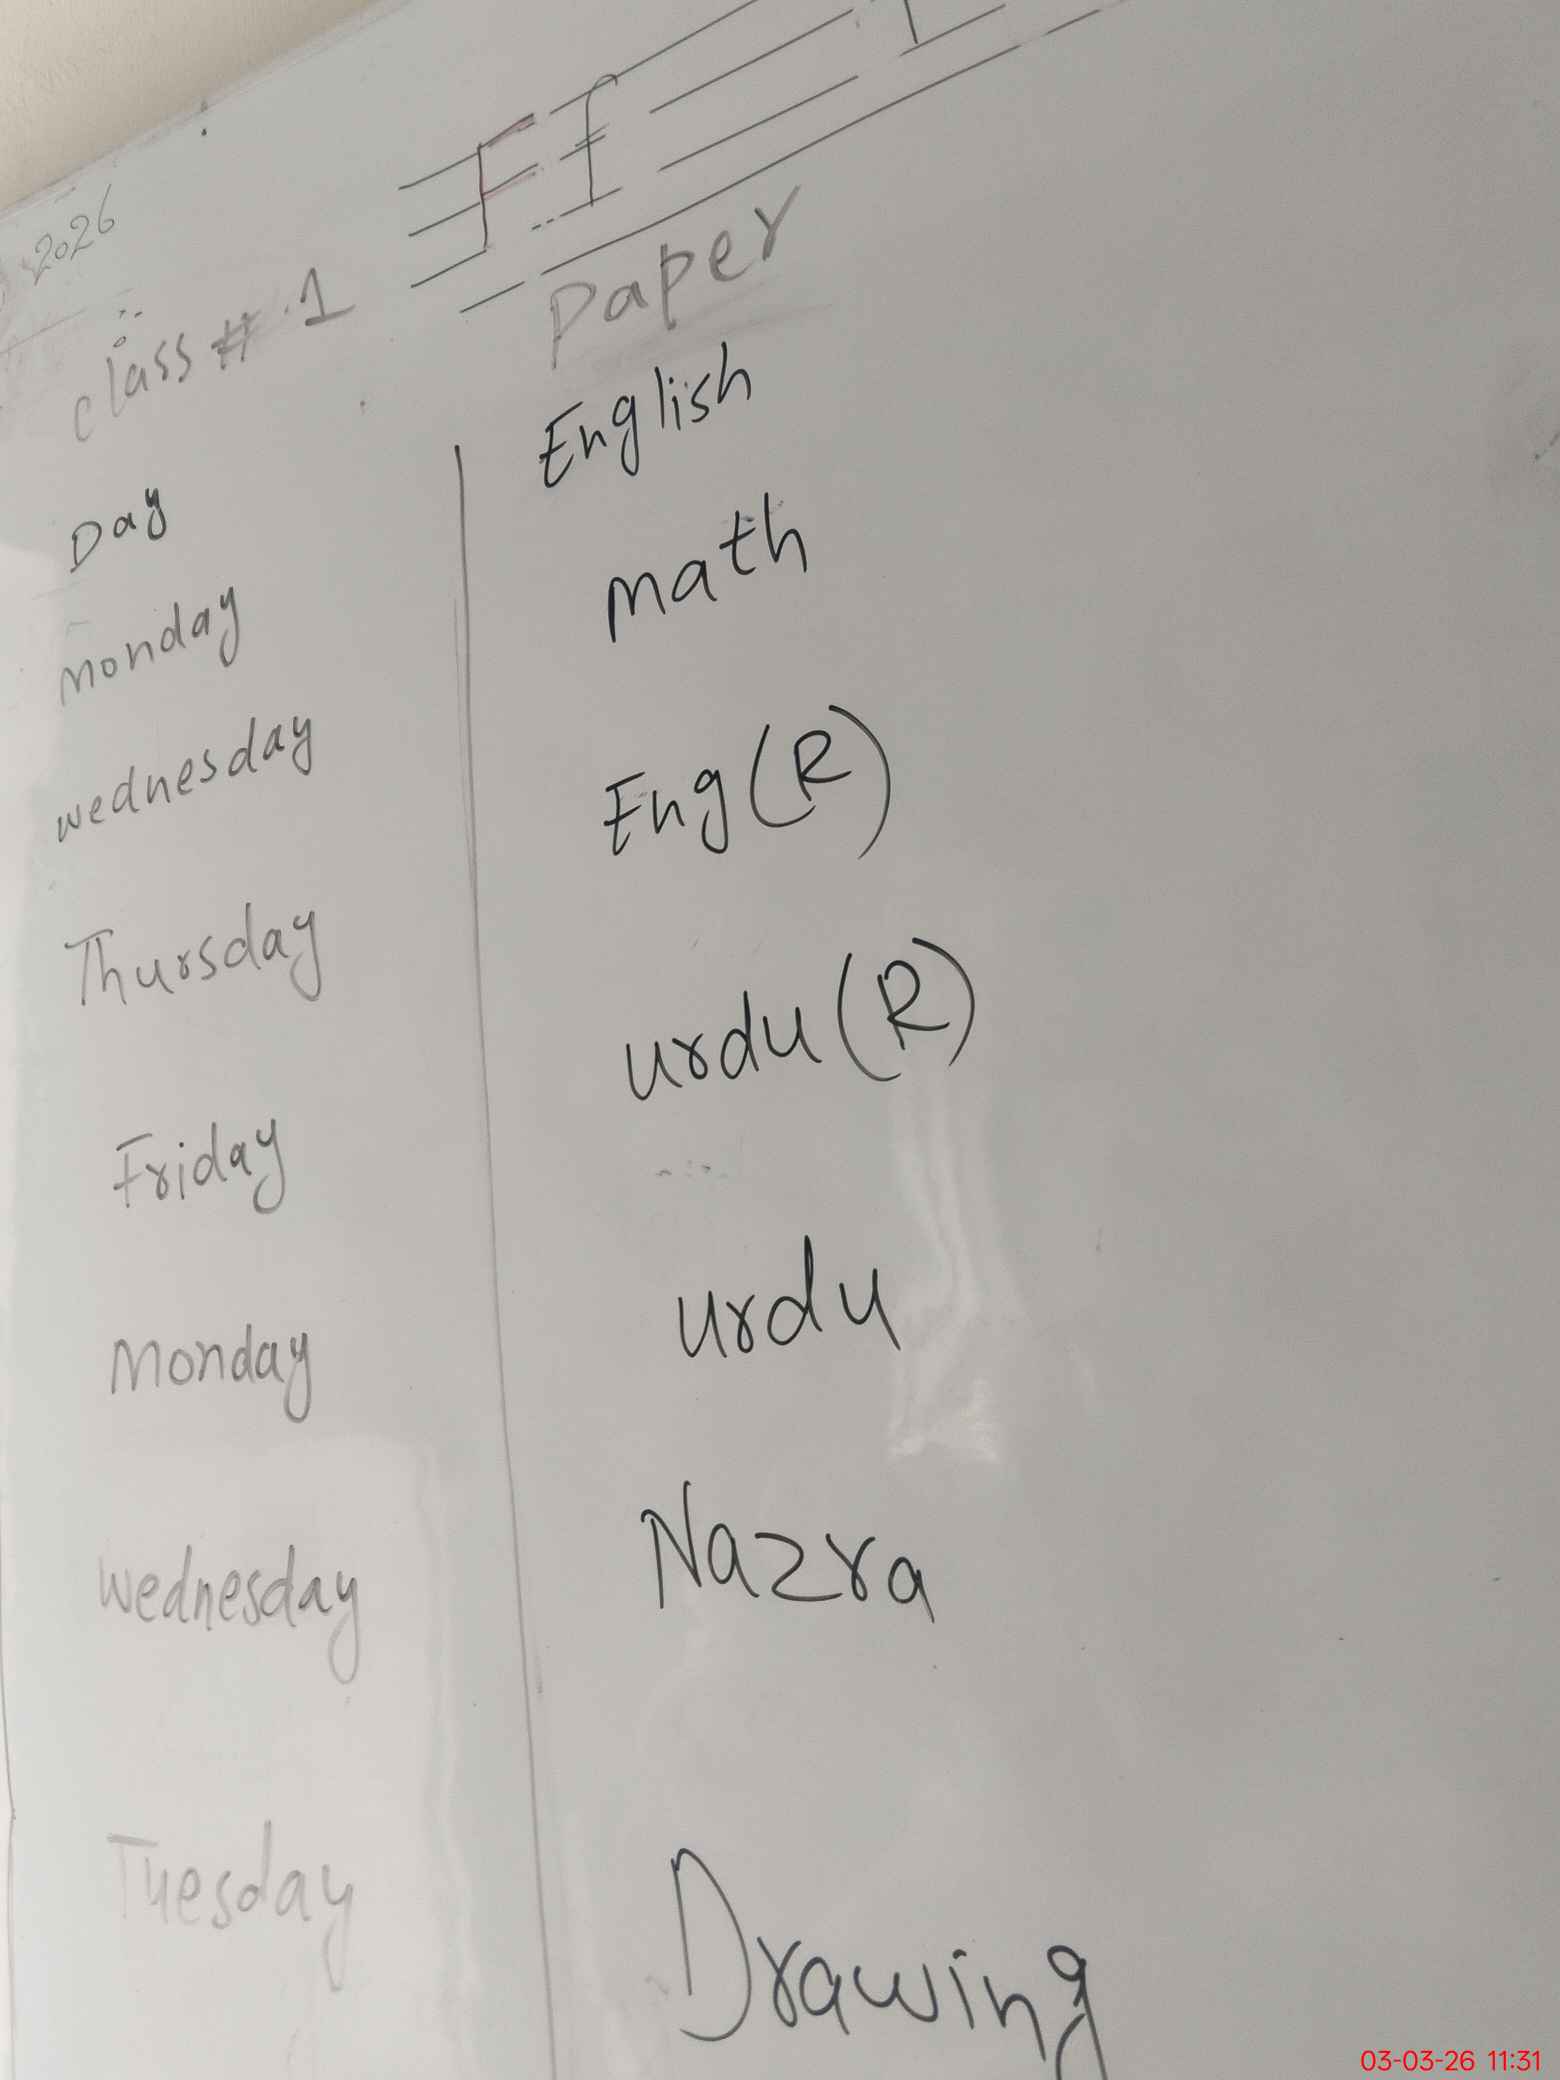 2026
Ff
class # 1
Paper
Day
English
monday
math
wednesday
Eng (R)
Thursday
urdu (R)
Friday
urdu
Monday
Nazra
wednesday
Drawing
Tuesday
03-03-26 11:31